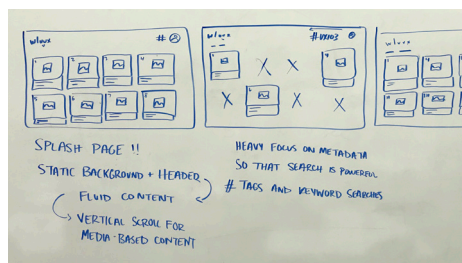 SPLASH PAGE !!
STATIC BACKGROUND + HEADER
FLUID CONTENT
VERTICAL SCROLL FOR
MEDIA-BASED CONTENT
HEAVY FOCUS ON METADATA
SO THAT SEARCH IS POWERFUL
# TAGS AND KEYWORD SEARCHES